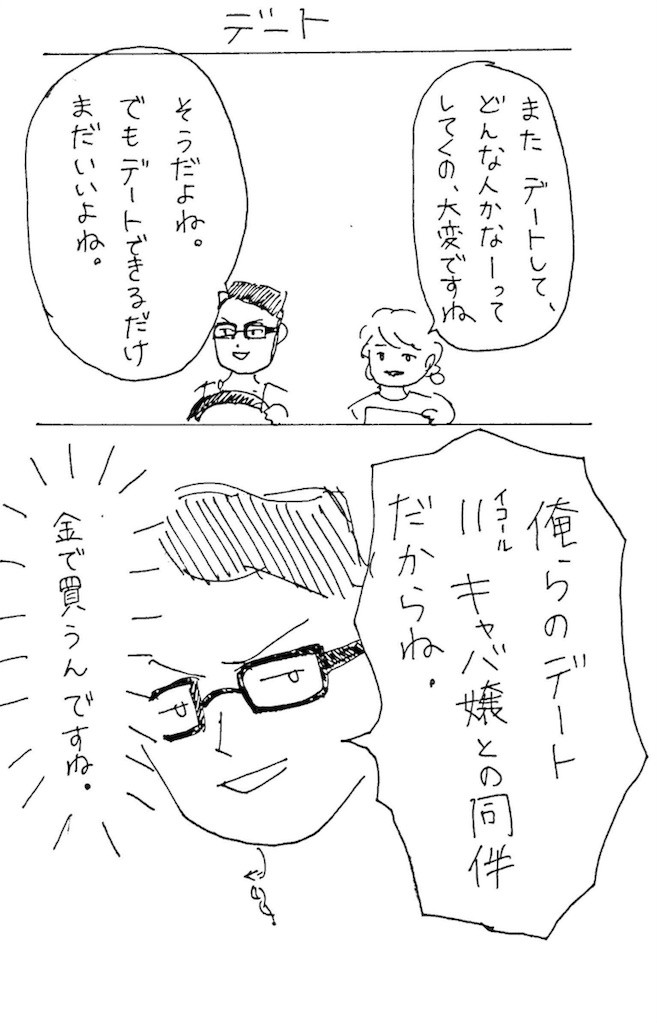 デート
また デートして、
どんな人かなーって
してくの、大変ですね
そうだよね。
でもデートできるだけ
まだいいよね。
俺らのデート
イコール
＝キャバ嬢との同伴
だからね.
金で買うんですね.